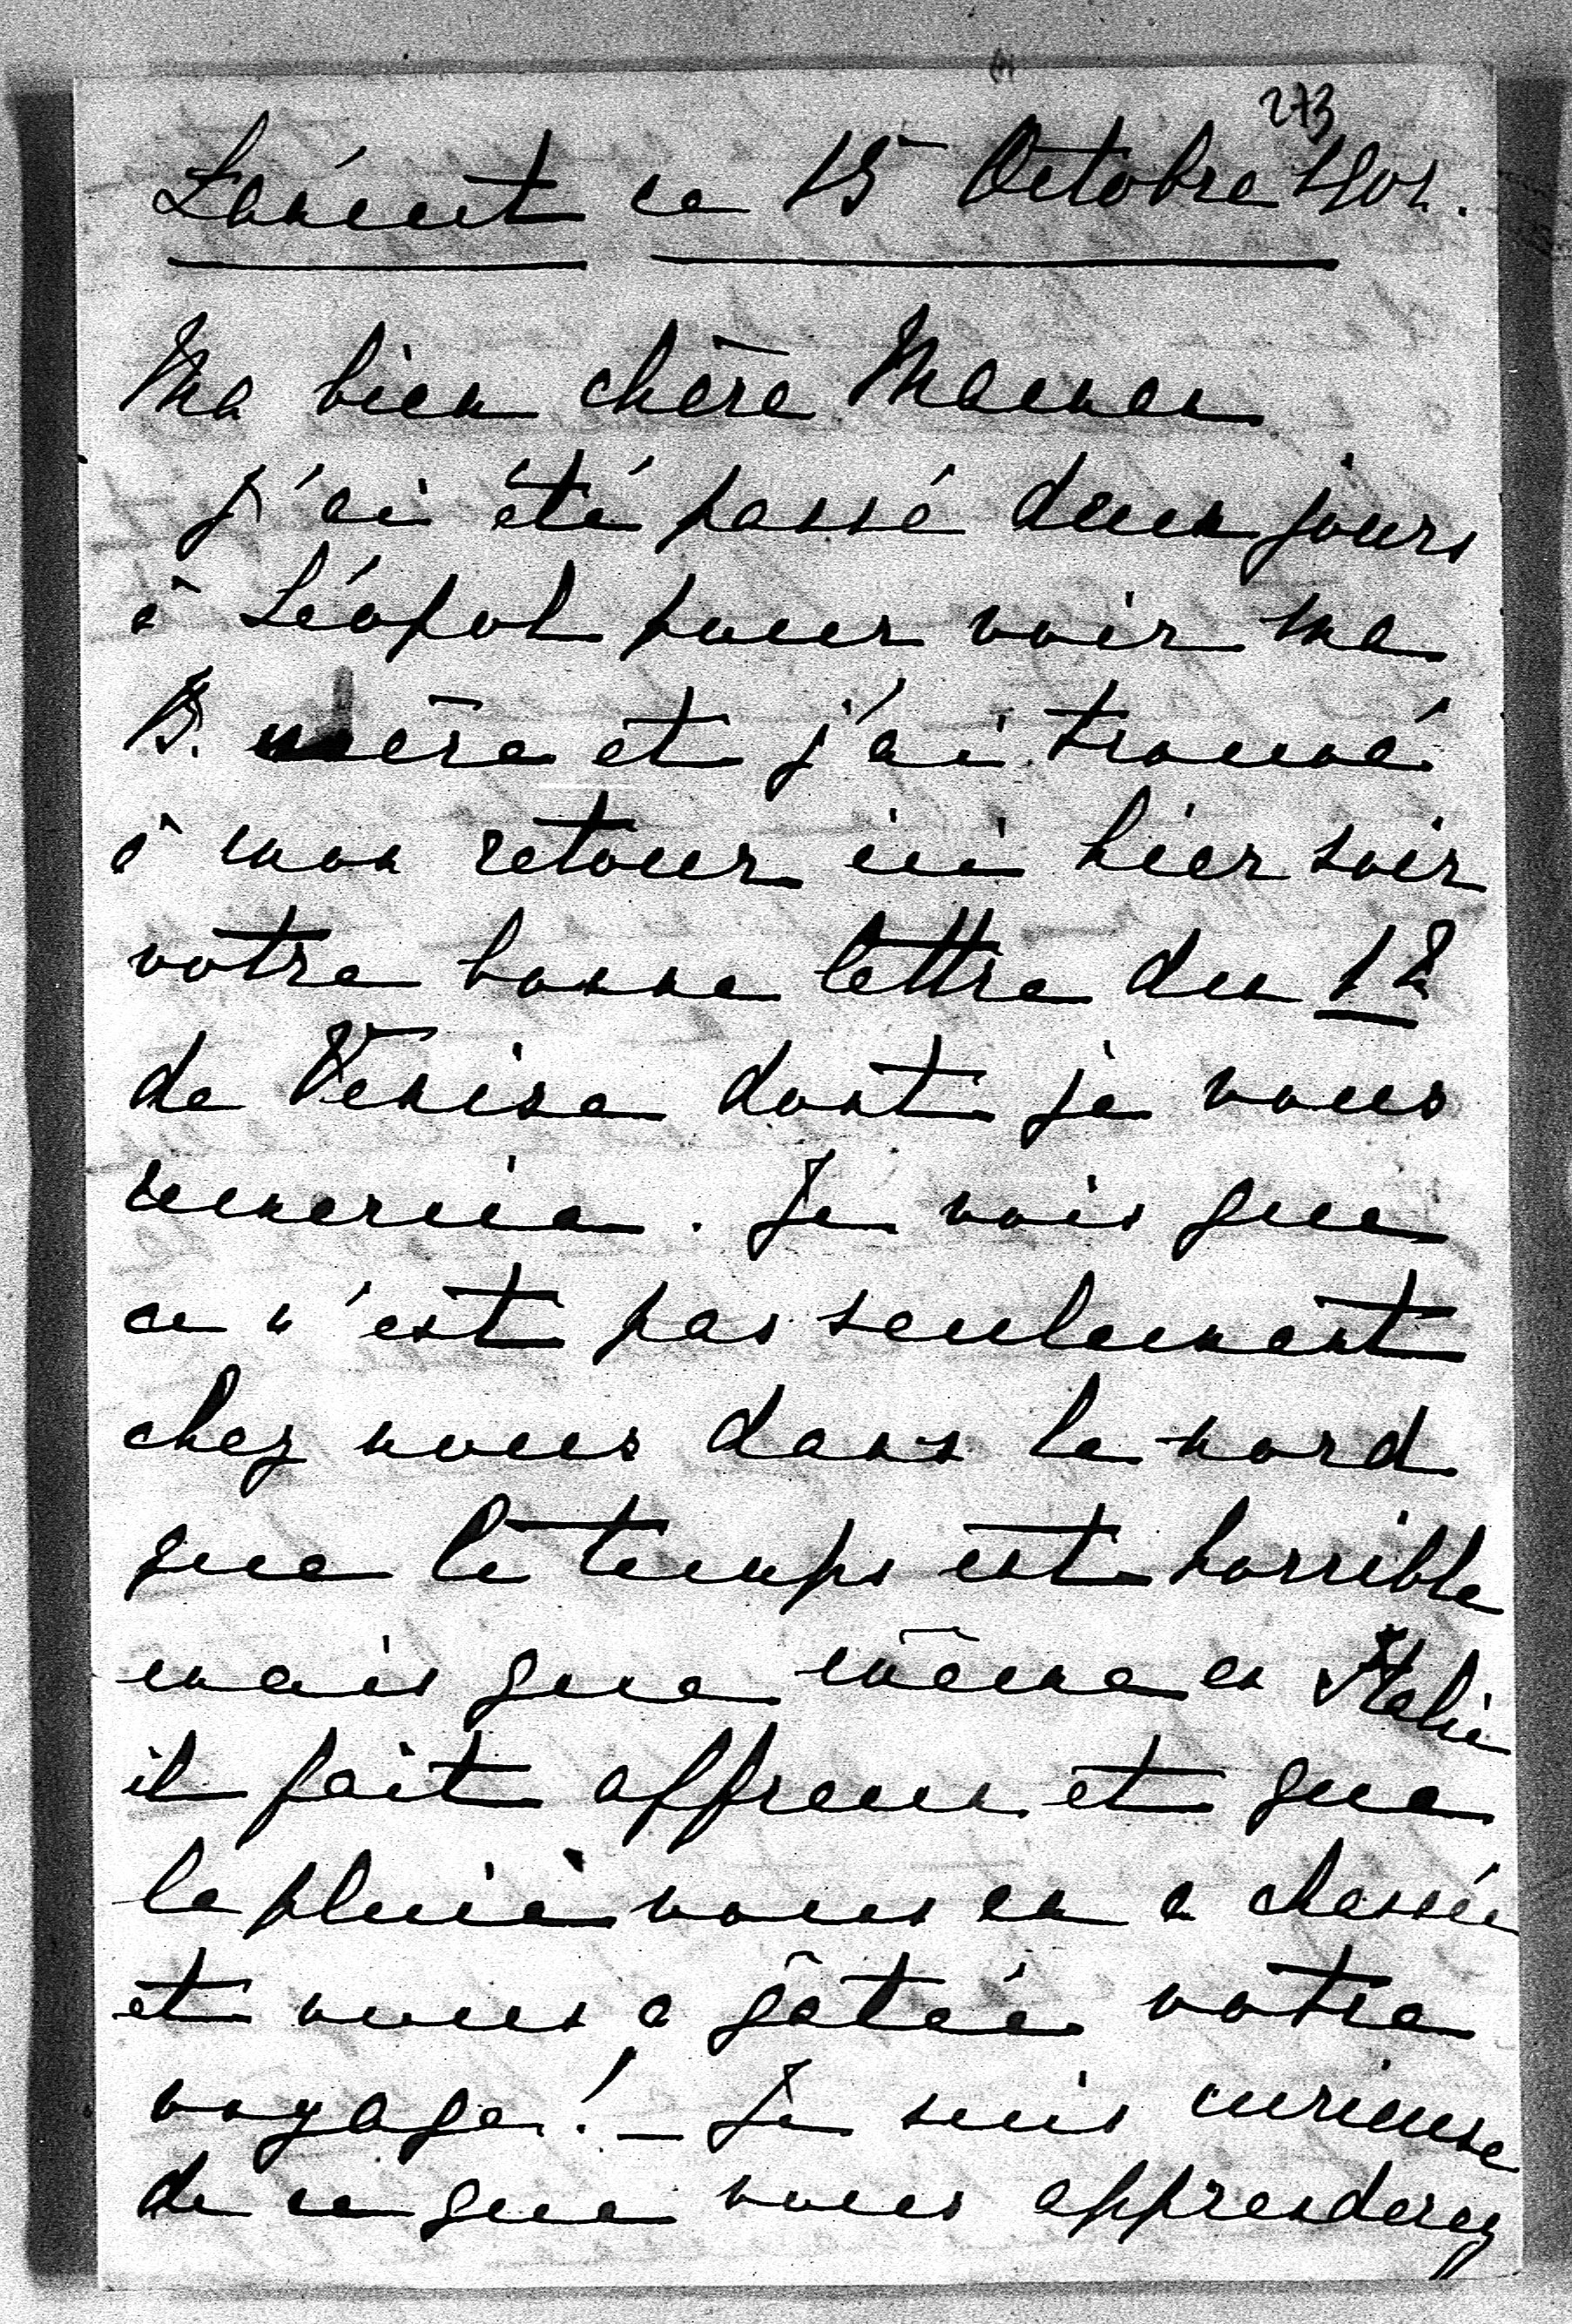 273
Łańcut ce 15 Octobre 1901.
Ma bien chère Maman
j'ai été passé deux jours
à Léopol pour voir ma
B. mère et j'ai trouvé
à mon retour ici hier soir
votre bonne lettre du 12
de Venise dont je vous
remercie. Je vois que
ce n'est pas seulement
chez nous dans le nord
que le temps est horrible
mais que même en Italie
il fait affreux et que
la pluie vous en a chassée
et vous a gâtée votre
voyage! _ Je suis curieuse
de ce que vous apprenderez